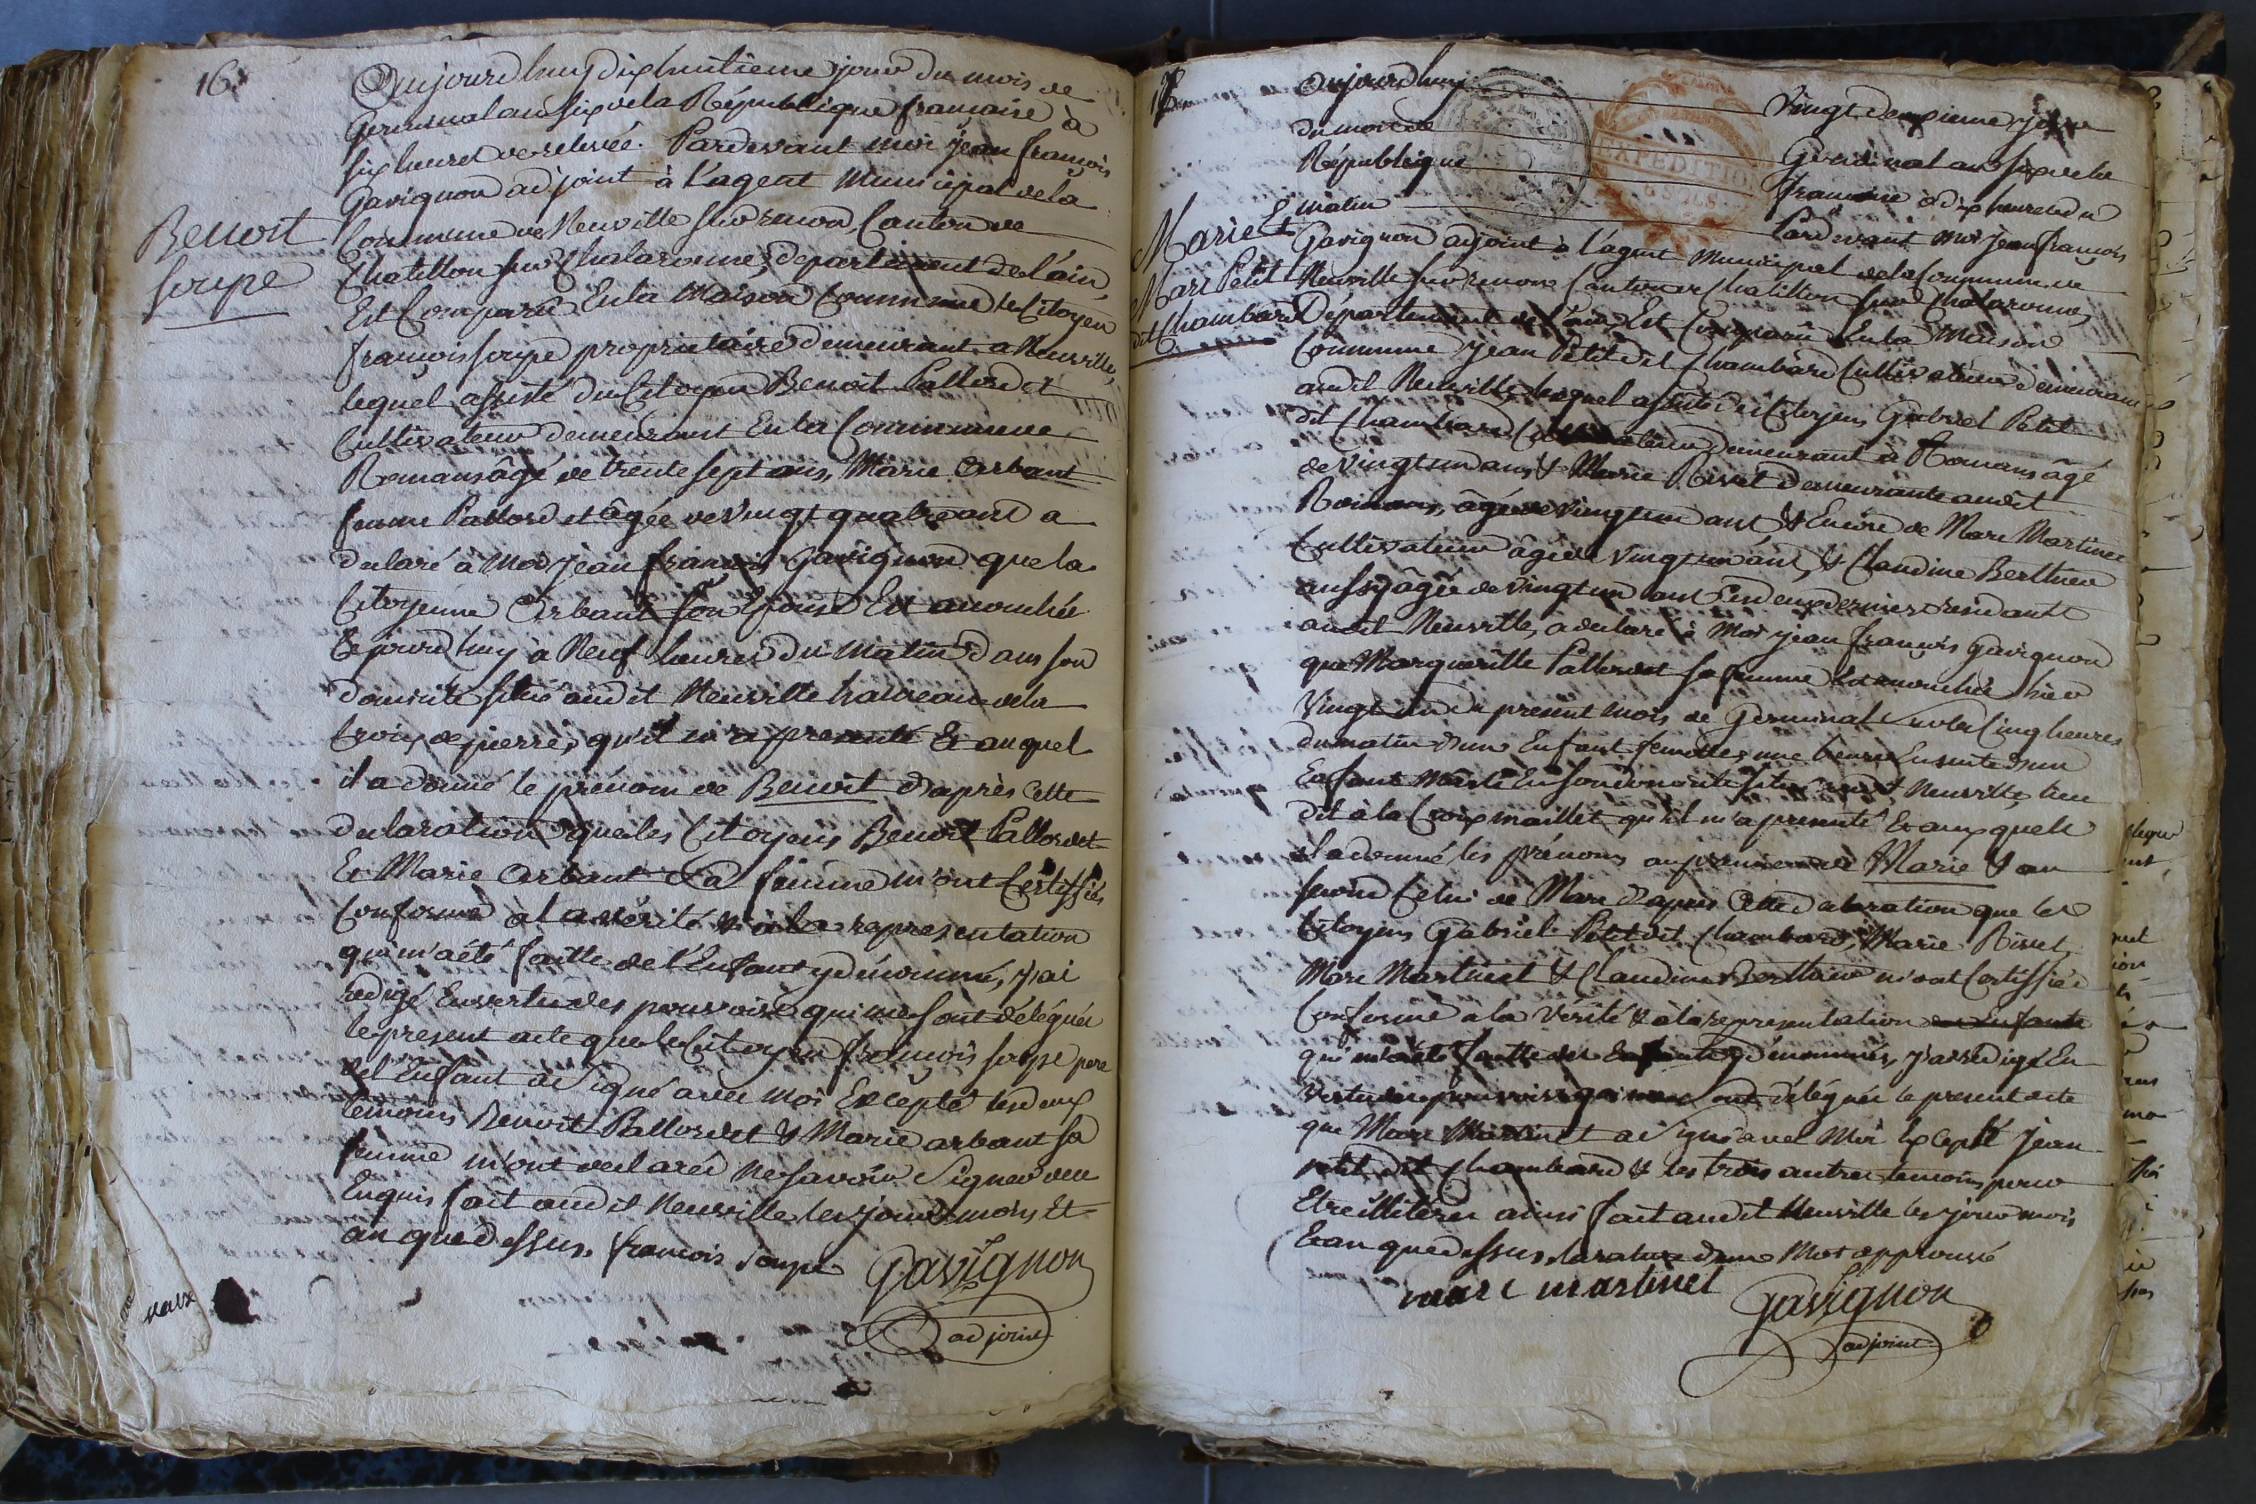 16.
Benoit
soupe
Aujourd'huy dix huitieme jour du mois de
Germinal an six de la République française à
six heures de relevée. Pardevant moi jean françois
Gavignon adjoint à l'agent Municipal de la
Commune de Neuville sur renon Canton de
Chatillon sur Chalaronne, departement de l'ain,
Est Comparu En la Maison Commune le Citoyen
françois soupe proprietaire demeurant a Neuville,
lequel assisté du Citoyen Benoit Pallordet
Cultivateur demeurant En la Commune de
Romans âgé de trente sept ans, Marie Arbant
femme Pallordet âgée de vingt quatre ans a
declaré à Moi jean françois Gavignon que la
Citoyenne Arbant son Epouse Est accouchée
Cejourd'huy à Neuf heures du matin dans son
domicile situé audit Neuville hameau de la
Croix de pierre, qu'il m'a presenté Et auquel
il a donné le prénom de Benoit d'après Cette
declaration que les Citoyens Benoit Pallordet
Et Marie Arbant sa femme m'ont Certiffiés
Conforme a la vérité & à la representation
qui m'a été faitte de l'Enfant y dénommé, j'ai
redigé En vertu des pouvoirs qui me sont délégués
le present acte que le Citoyen françois soupe pere
de l'Enfant a signé avec Moi Excepté les deux
temoins Benoit Pallordet & Marie arbant sa
femme m'ont declarés ne savoir signer de ce
Enquis fait audit Neuville les jour mois Et
an que dessus. francois soupe Gavignon
adjoint
Marie Et
Marc Petit
dit Chambard
Aujourd'huy vingt deuxieme jour
du mois de Germinal an six de la
République française à dix heures du
matin Pardevant moi jean françois
Gavignon adjoint à l'agent Municipal de la Commune de
Neuville sur renon Canton de Chatillon sur Chalaronne,
Département de l'ain, Est Comparû En la Maison
Commune jean Petit dit Chambard Cultivateur demeurant
audit Neuville, lequel assisté des Citoyens Gabriel Petit
dit Chambard Cultivateur demeurant à Romans âgé
de vingt un ans, & Marie Rivet demeurante audit
Romans, âgée de vingt un ans & Encore de Marc Martinet
Cultivateur âgé de vingt un ans, & Claudine Berthieu
aussy âgée de vingt un ans ces deux derniers residants
audit Neuville, a declaré à Moi jean françois Gavignon
que Marguerite Pallordet sa femme Est accouchée hier
vingt un du present mois de Germinal sur les Cinq heures
du matin d'une Enfant femelle, une heure Ensuite d'un
Enfant Mâsle En son domicile situé audit Neuville, lieu
dit à la Croix maillet qu'il m'a presenté Et auxquels
il a donné les prénoms au premier de Marie & au
second Celui de Marc d'apres Cette declaration que les
Citoyens Gabriel Petit dit Chambard, Marie Rivet,
Marc Martinet & Claudine Berthieu m'ont Certiffiés
Conforme à la Vérité & à la representation
qui m'a été faitte des Enfants y dénommés, j'ai redigé En
vertu des pouvoirs qui me sont délégués le present acte
que Marc Martinet a signé avec Moi Excepté jean
petit dit Chambard & les trois autres temoins pour
Etre illiterés ainsi fait audit Neuville les jour mois
Et an que dessus la rature d'un Mot approuvé
marc martinet Gavignon
adjoint
EXPEDITION